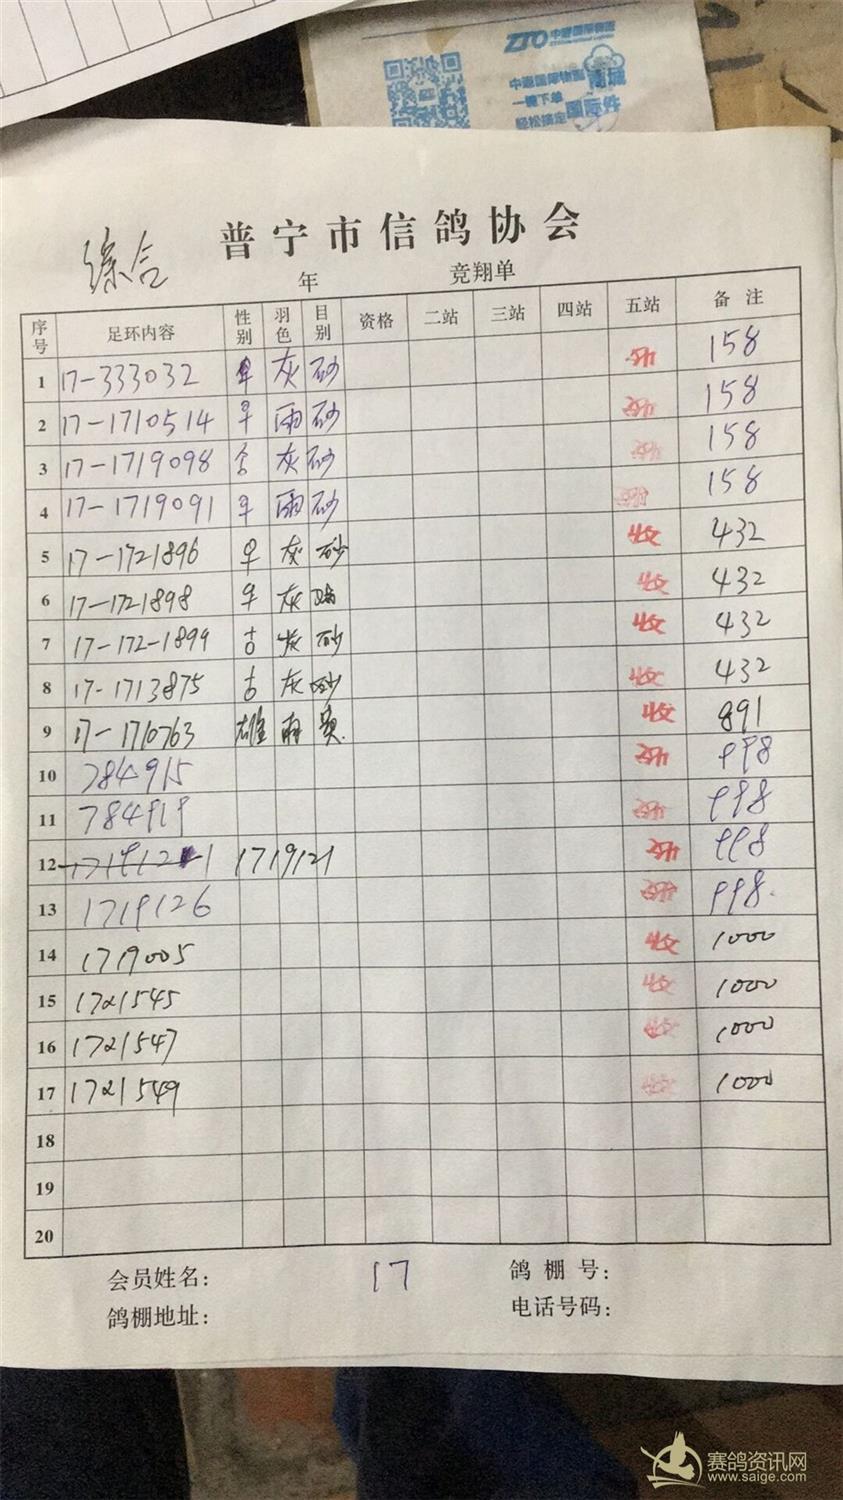 ZTO 中通国际物流
中通国际物流
一键下单
轻松搞定
综合
普宁市信鸽协会
年 竞翔单
序号 足环内容 性别 羽色 目别 资格 二站 三站 四站 五站 备注
1 17-333032 灰 砂 收 158
2 17-1710514 雨 砂 收 158
3 17-1719098 灰 砂 收 158
4 17-1719091 雨 砂 收 158
5 17-1721896 灰 砂 收 432
6 17-1721898 灰 收 432
7 17-172-1899 灰 砂 收 432
8 17-1713875 灰 砂 收 432
9 17-1710763 雄 雨 黄 收 891
10 784915 收 998
11 784919 收 998
12 1719121 1719121 收 998
13 1719126 收 998.
14 1719005 收 1000
15 1721545 收 1000
16 1721547 收 1000
17 1721549 收 1000
18
19
20
会员姓名: 17 鸽棚号:
鸽棚地址: 电话号码:
赛鸽资讯网
www.saige.com